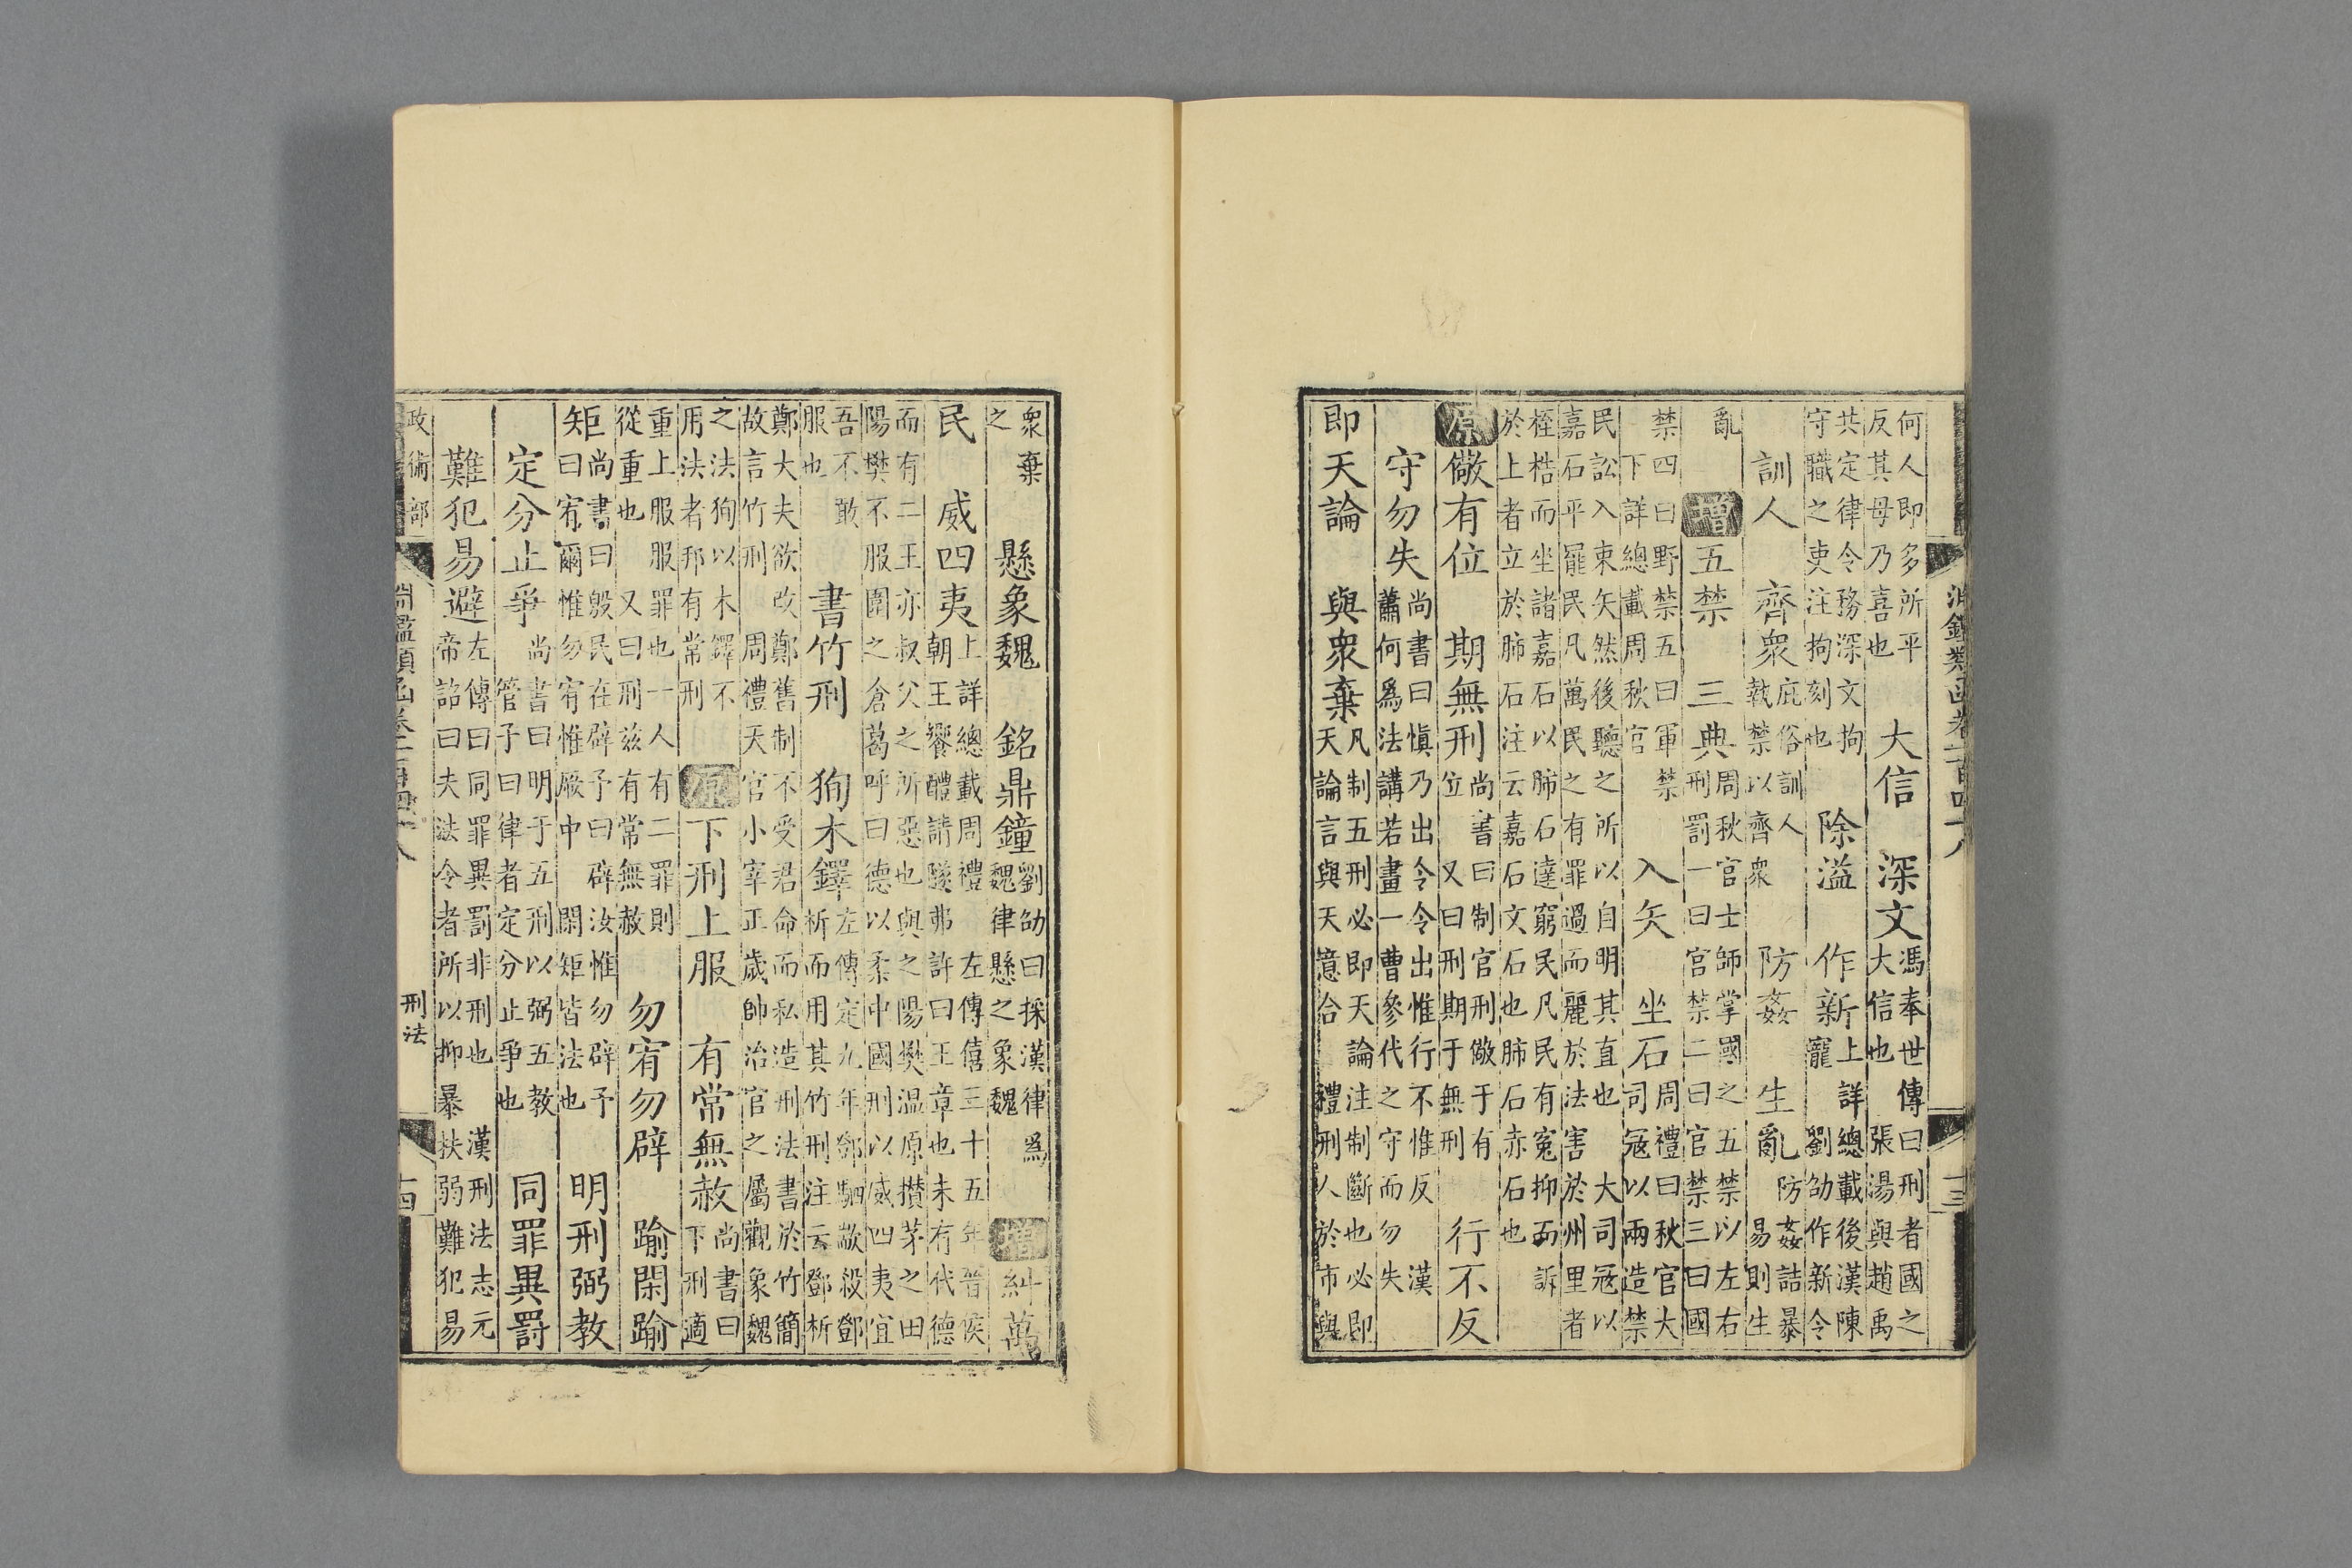 淵鑑類函卷一百四十八 十三
何人即多所平
反其母乃喜也
大信 深文
馮奉世傳曰刑者國之
大信也 張湯與趙禹
共定律令務深文拘
守職之吏注拘刻也
除溢 作新
上詳總載後漢陳
寵 劉劭作新令
訓人 齊衆
庇俗訓人
執禁以齊衆
防姦 生亂
防姦詰暴
易則生
亂
增 五禁 三典
周秋官士師掌國之五禁以左右
刑罰一曰官禁二曰官禁三曰國
禁四曰野禁五曰軍禁
下詳總載周秋官
入矢 坐石
周禮曰秋官大
司寇以兩造禁
民訟入束矢然後聽之所以自明其直也 大司寇以
嘉石平罷民凡萬民之有罪過而麗於法害於州里者
桎梏而坐諸嘉石以肺石達窮民凡民有冤抑而訴
於上者立於肺石注云嘉石文石也肺石赤石也
原 儆有位 期無刑
尚書曰制官刑儆于有
位 又曰刑期于無刑
行不反
守勿失
尚書曰慎乃出令令出惟行不惟反 漢
蕭何爲法講若畫一曹參代之守而勿失
即天論 與衆棄
凡制五刑必即天論注制斷也必即
天論言與天意合 禮刑人於市與
衆棄
之
懸象魏 銘鼎鐘
劉劭曰採漢律爲
魏律懸之象魏
增 糾萬
民 威四夷
上詳總載周禮 左傳僖三十五年晉侯
朝王饗醴請隧弗許曰王章也未有代德
而有二王亦叔父之所惡也與之陽樊温原攢茅之田
陽樊不服圍之倉葛呼曰德以柔中國刑以威四夷宜
吾不敢
服也
書竹刑 狥木鐸
左傳定九年鄧駟歂殺鄧
析而用其竹刑注云鄧析
鄭大夫欲改鄭舊制不受君命而私造刑法書於竹簡
故言竹刑 周禮天官小宰正歲帥治官之屬觀象魏
之法狥以木鐸不
用法者邦有常刑
原 下刑上服 有常無赦
尚書曰
下刑適
重上服服罪也一人有二罪則
從重也 又曰刑兹有常無赦
勿宥勿辟 踰閑踰
矩
尚書曰殷民在辟予曰辟汝惟勿辟予
曰宥爾惟勿宥惟厥中 閑矩皆法也
明刑弼教
定分止爭
尚書曰明于五刑以弼五教
管子曰律者定分止爭也
同罪異罰
難犯易避
左傳曰同罪異罰非刑也 漢刑法志元
帝詔曰夫法令者所以抑暴扶弱難犯易
政術部 淵鑑類函卷一百四十八 刑法 十四